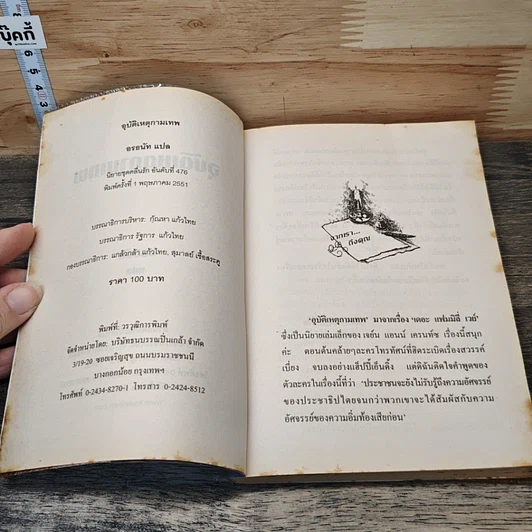 บุ๊คกี้
6
5
4
3
อุบัติเหตุกามเทพ
อรอนัท แปล
นิยายชุดคลื่นรัก อันดับที่ 476
พิมพ์ครั้งที่ 1 พฤษภาคม 2551
บรรณาธิการบริหาร: กัณหา แก้วไทย
บรรณาธิการ รัฐการ แก้วไทย
กองบรรณาธิการ: แกล้วกล้า แก้วไทย, สุมาลย์ เชื้อสระคู
ราคา 100 บาท
พิมพ์ที่: วรวุฒิการพิมพ์
จัดจำหน่ายโดย: บริษัทธนบรรณปิ่นเกล้า จำกัด
3/19-20 ซอยเจริญสุข ถนนบรมราชชนนี
บางกอกน้อย กรุงเทพฯ
โทรศัพท์ 0-2434-8270-1 โทรสาร 0-2424-8512
จากเรา...
ถึงคุณ
'อุบัติเหตุกามเทพ' มาจากเรื่อง 'เดอะ แฟมมิลี่ เวย์'
ซึ่งเป็นนิยายเล่มเล็กของ เจย์น แอนน์ เครนท์ซ เรื่องนี้สนุก
ค่ะ ตอนต้นคล้ายๆละครโทรทัศน์ที่ฮิตระเบิดเรื่องสวรรค์
เบี่ยง จบลงอย่างแฮ็ปปี้เอ็นดิ้ง แต่ดิฉันติดใจคำพูดของ
ตัวละครในเรื่องนี้ที่ว่า 'ประชาชนจะยังไม่รับรู้ถึงความอัศจรรย์
ของประชาธิปไตยจนกว่าพวกเขาจะได้สัมผัสกับความ
อัศจรรย์ของความอิ่มท้องเสียก่อน'